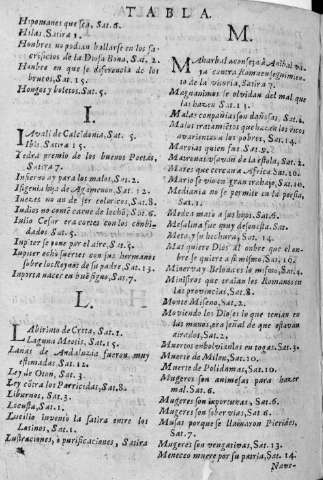 TABLA.
Hipomanes que sea, Sat. 6.
Hilas. Satira 1.
Hombres no podian hallarse en los sa-
crificios de la Diosa Bona, Sat. 2.
Hombre en que se diferencia de los
brutos, Sat. 15.
Hongos y boletos, Sat. 5.
I.
IAvali de Calcidonia, Sat. 5.
Ibis. Satira 15.
Iedra premio de los buenos Poetas,
Satira 7.
Infierno ay para los malos, Sat. 2.
Ifigenia hija de Agamenon, Sat. 12.
Iuezes no an de ser colericos, Sat. 8.
Iudios no come carne de lechō, Sat. 6
Iulio Cesar era cortes con los combi-
dados, Sat. 5.
Iupiter se pone por el aire, Sat. 5.
Iupiter echò suertes con sus hermanos
sobre los Reynos de su padre, Sat. 13.
Importa nacer en buē signo, Sat. 7.
L.
LAbirinto de Creta, Sat. 1.
Laguna Meotis, Sat. 15.
Lanas de Andaluzia fueron muy
estimadas Sat. 12.
Ley de Oton, Sat. 3.
Ley cōtra los Parricidas, Sat. 8.
Liburnos, Sat. 3.
Locusta, Sat. 1.
Lucilio inventò la satira entre los
Latinos, Sat. 1.
Lustraciones, ò purificaciones, Satira
M.
MAharbal aconseja à Anibal va
ya contra Roma en seguimien-
to de la vitoria, Satira 7.
Magnanimos se olvidan del mal que
les hazen Sat. 13.
Malas conpañias son dañosas, Sat.
Malos tratamiētos que hazen los ricos
avarientos a los pobres, Sat. 14.
Marcias quien fue Sat. 9.
Matronas usavan de la estola, Sat. 2.
Mares que cercan a Africa Sat. 10.
Mario se vio en gran trabajo, Sat. 10.
Mediania no se permite en la poesia,
Sat. 1.
Medea matò a sus hijos, Sat. 6.
Mesalina fue muy desonesta, Sat.
Meta, y su hechura, Sat. 14.
Mas quiere Dios al onbre que el on-
bre se quiere a si mismo, Sat. 10.
Minerva y Belona es lo mismo, Sat. 4.
Ministros que enbian los Romanos a
las provincias, Sat. 8.
Monte Miseno, Sat. 2.
Moviendo los Dioses lo que tenian en
las manos, era señal de que estavan
airados, Sat. 2.
Muertos enbolvianlos en togas. Sat. 3.
Muerte de Milon, Sat. 10.
Muerte de Polidamas, Sat. 10.
Mugeres son animosas para hazer
mal. Sat. 6.
Mugeres son inportunas, Sat. 6.
Mugeres son sobervias, Sat. 6.
Musas porque se llamaron Pierides,
Sat. 7.
Mugeres son vengativas, Sat. 13.
Meneceo muere por su patria, Sat. 14.